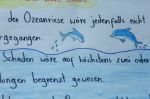 der Ozeanriese wäre jedenfalls nicht
ergegangen.
Schaden wäre auf höchstens zwei oder
lungen begrenzt gewesen.